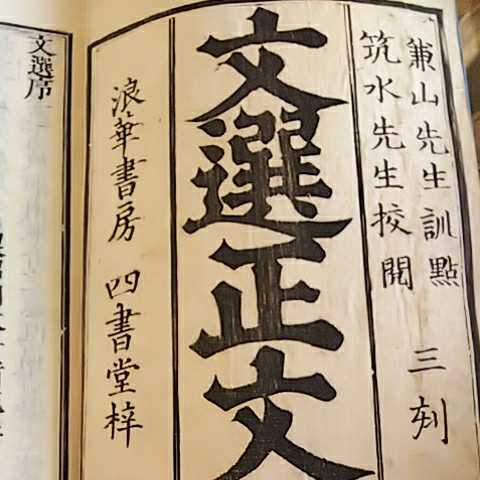 兼山先生訓點 三刻
筑水先生挍閲
文選正文
浪華書房 四書堂梓
文選序